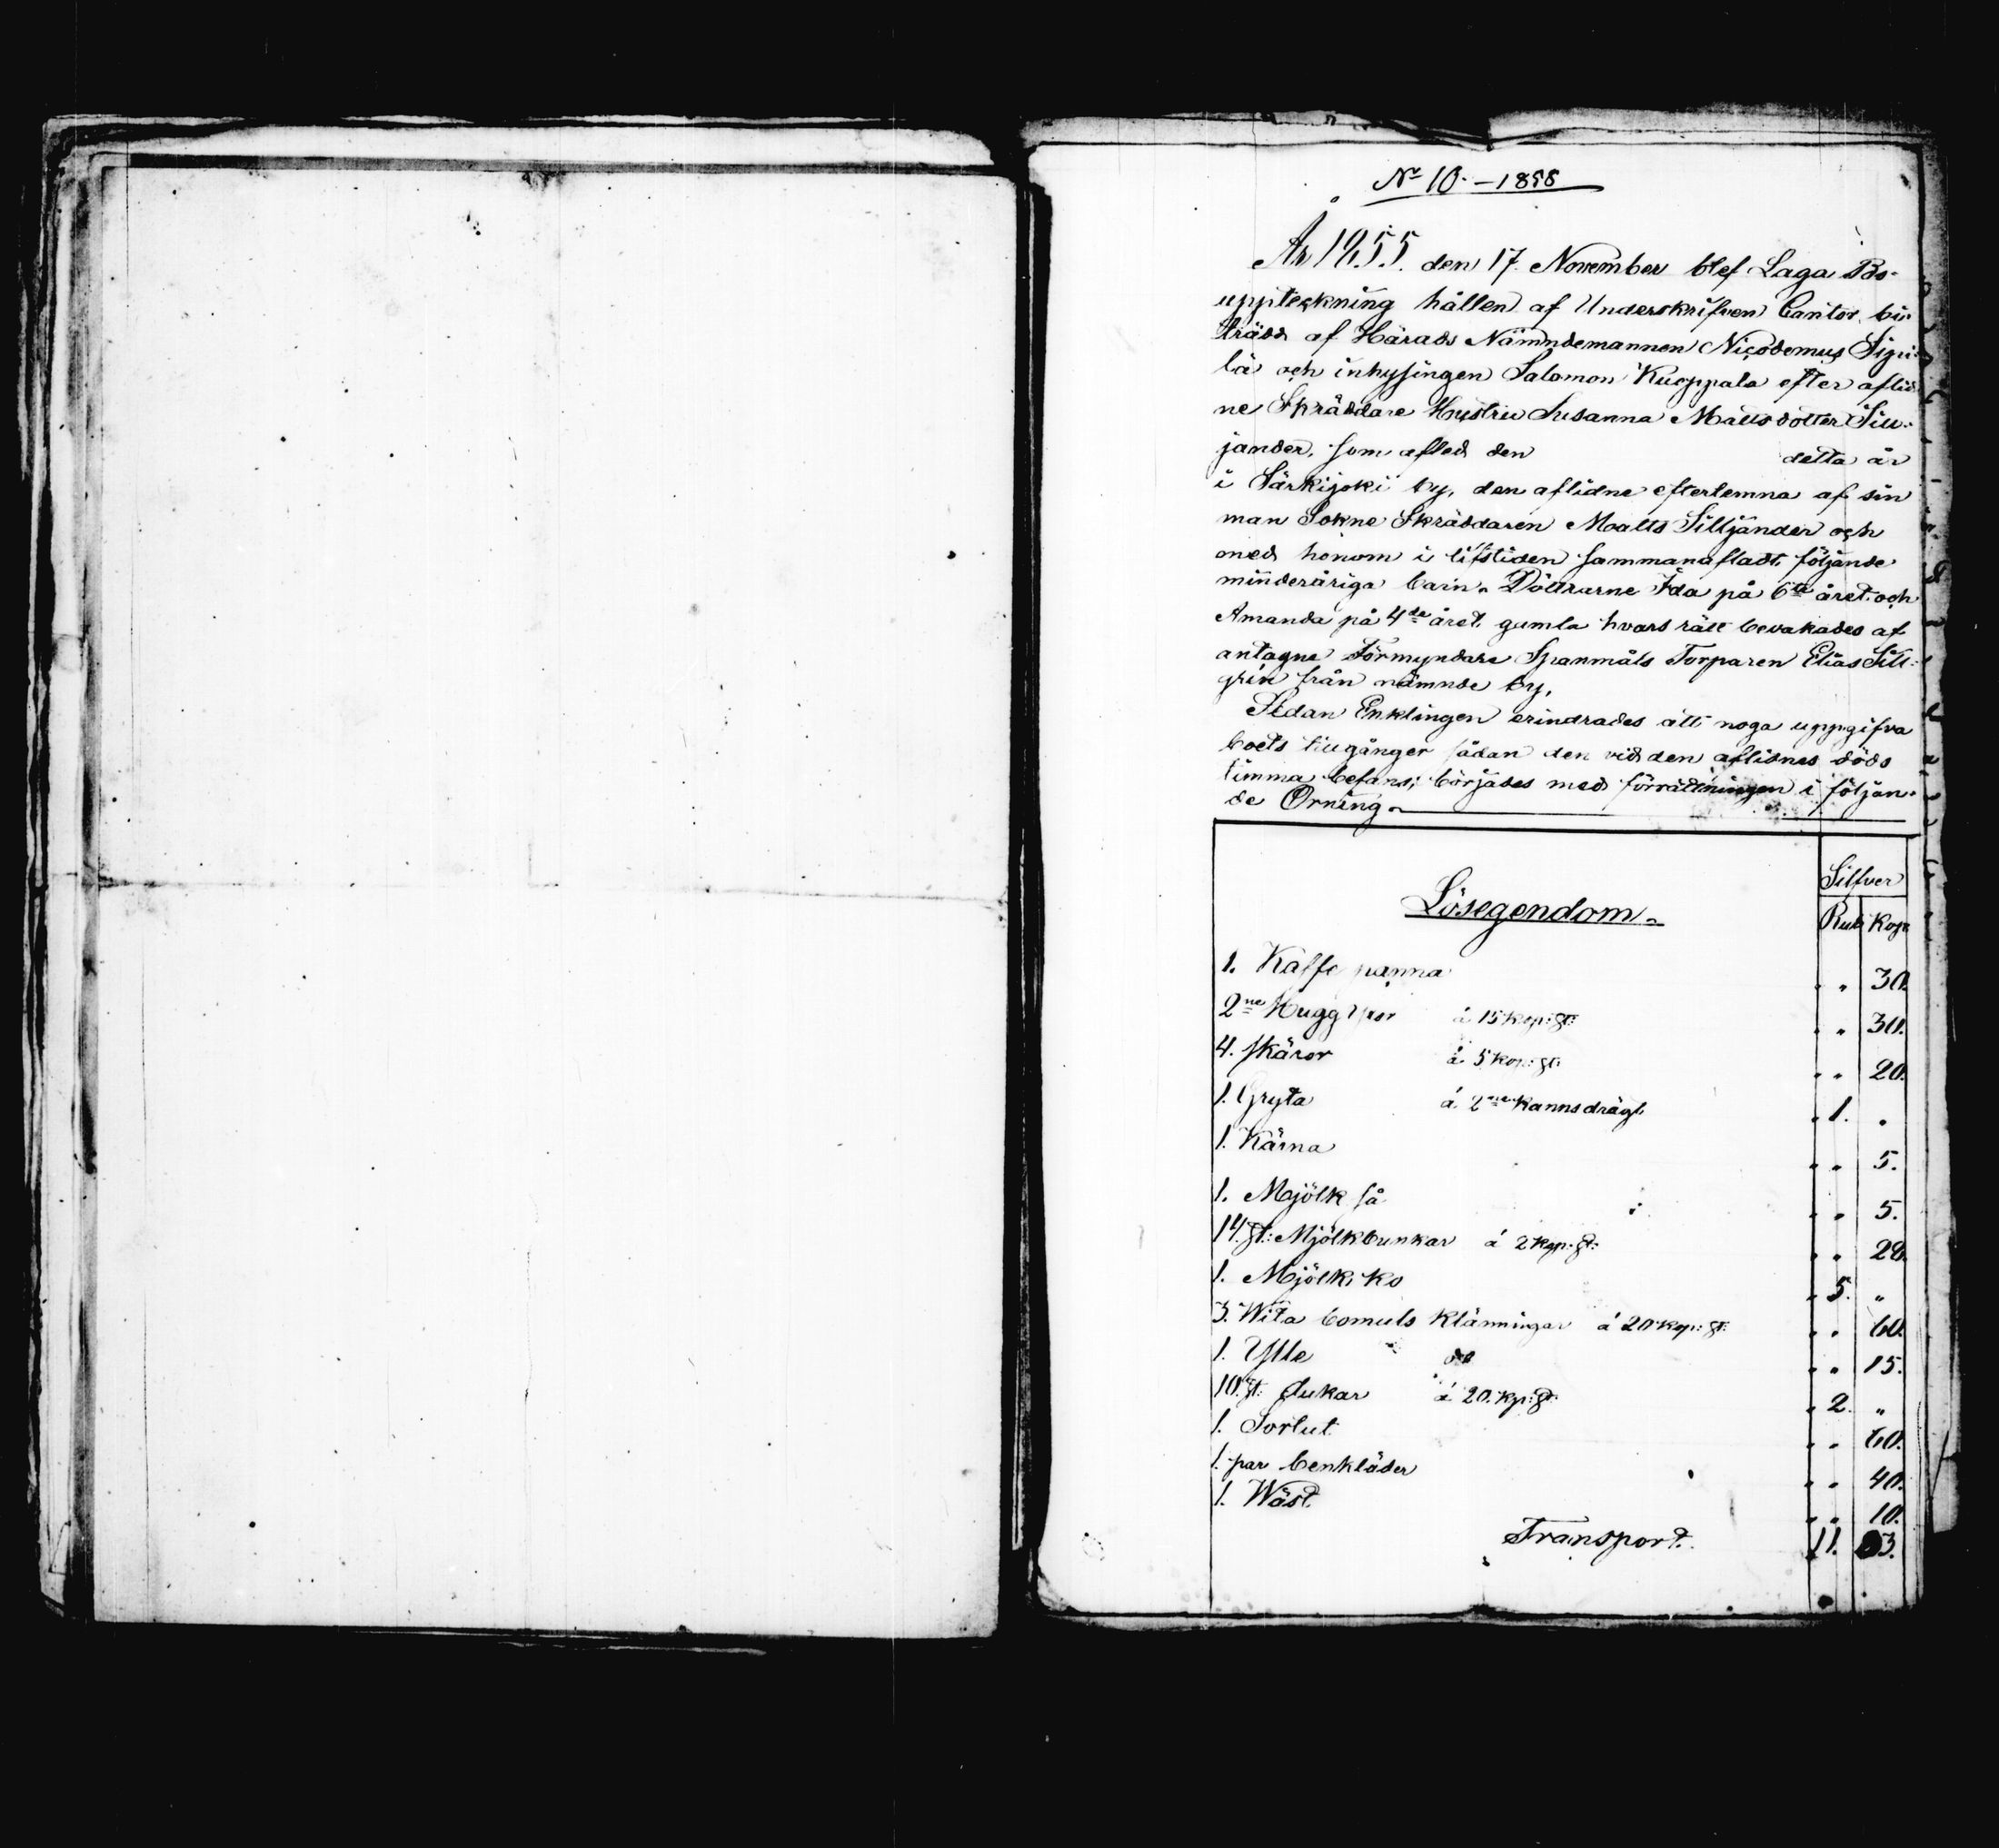 No 10.–1858
År 1855. den 17. November blef Laga Bo-
uppteckning hållen af Underskrifven Cantor, bi-
trädd af Härads Nämndemannen Nicodemus Sipi-
lä och inhysingen Salomon Kuoppala efter aflid-
ne Skräddare Hustru Susanna Mattsdotter Sill-
jander, som afled den detta år
i Särkijoki by, den aflidne efterlemna af sin
man Sokne Skräddaren Matts Silljander och
med honom i lifstiden sammanaflade, följande
minderåriga barn. Döttrarne Ida på 6te året och
Amanda på 4de året gamla hvars rätt bevakades af
antagne Förmyndare Spanmåls Torparen Elias
från nämnde by.
Sedan Enklingen erindrades att noga uppgifva
boets tillgånger sådan den vid den aflidnes döds
timma befans; börjades med förrättningen i följan-
de Orning
Silfver
Lösegendom
Rub Kop
1. Kaffe panna " " 30.
2ne Hugg yxor á 15 kop: st: " " 30.
4. skäror á 5 kop: st: " " 20.
1. Gryta á 2ne kannsdrägt " 1. "
1. Kärna " " 5.
1. Mjölk så " " 5.
14. st: Mjölkbunkar á 2 kop: st: " " 28.
1. Mjölk ko " 5. "
3. Wita bomuls klänningar á 20 kop: st: " " 60.
1. Ylle do " " 15.
10. st: dukar á 20. kp: st: " 2. "
1. Sortut " " 60.
1. par benkläder " " 40.
1. Wäst " " 10.
Transport. 11. 03.